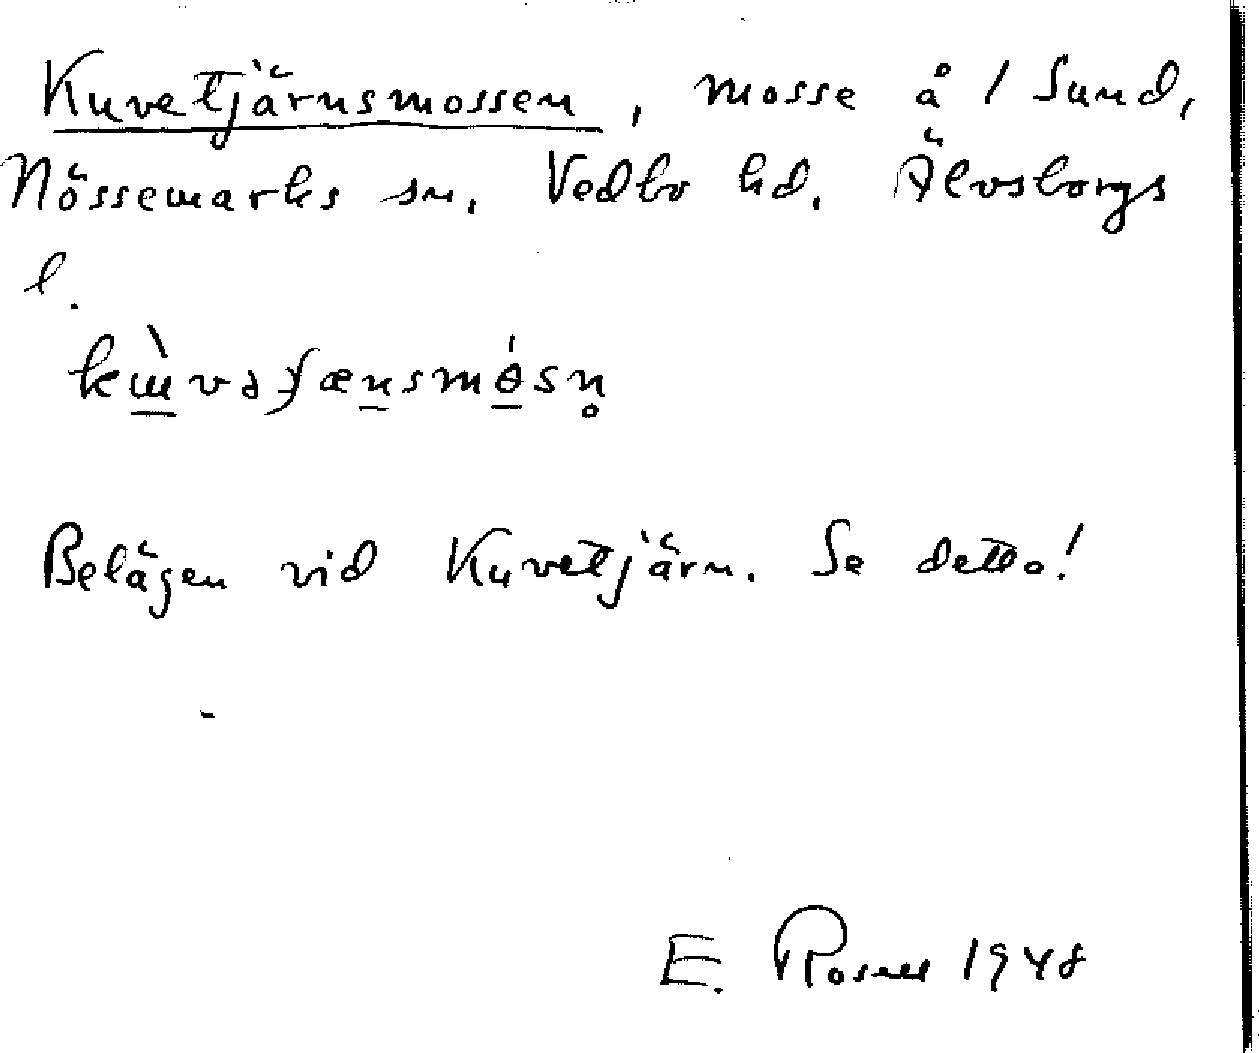 Kuvetjärnsmossen, mosse å / Sund,
Nössemarks sn. Vedbo hd. Älvsborgs
l.
Belägen vid Kuvetjärn. Se detto!
E. Rosell 1948